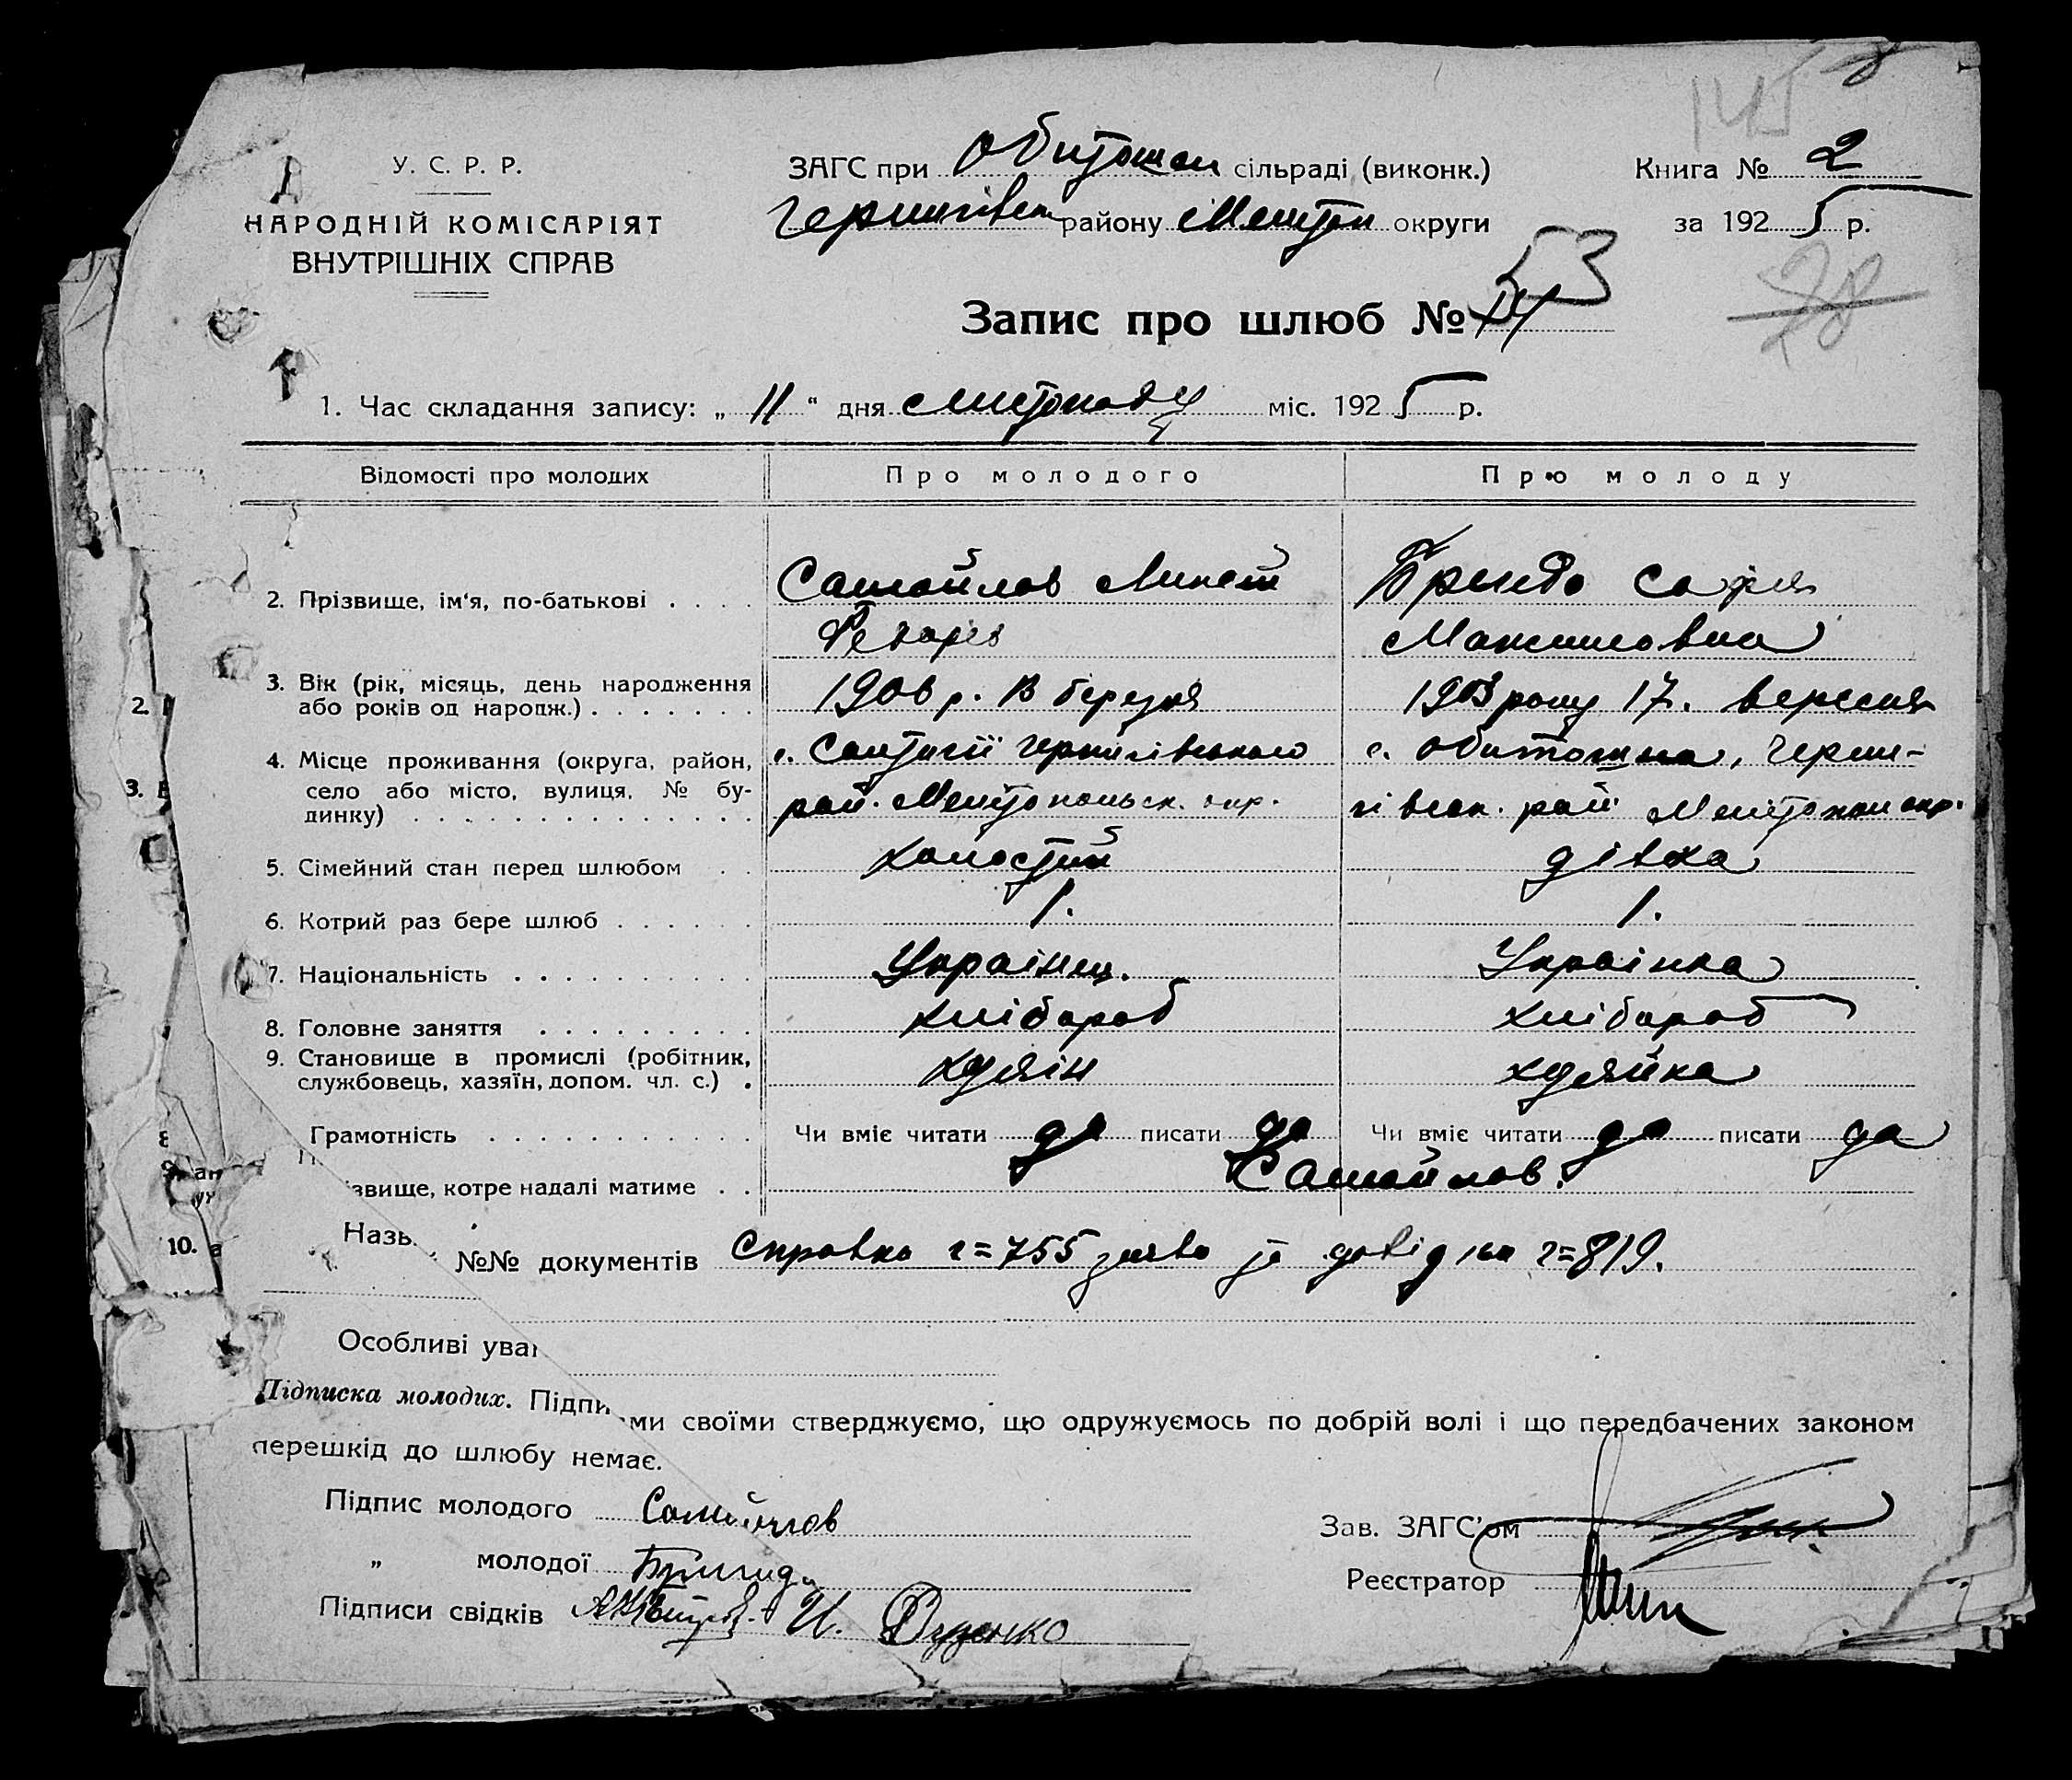 145
У. С. Р. Р.
НАРОДНІЙ КОМІСАРІЯТ
ВНУТРІШНІХ СПРАВ
ЗАГС при Обиточн сільраді (виконк.)
Чернигівськ району Мелітоп округи
Книга № 2
за 1925 р.
53
78
Запис про шлюб №
1. Час складання запису: „ 11 “ дня листопаду міс. 1925 р.
Відомості про молодих
Про молодого
Про молоду
2. Прізвище, ім‘я, по-батькові . . . .
Самойлов Микет
Федорів
Софія
Максимовна
3. Вік (рік, місяць, день народження
або років од нарощж.) . . . . . . .
1906 р. 13 березня
1903 року 17. вересня
4. Місце проживання (округа, район,
село або місто, вулиця, № бу-
динку) . . . . . . . . . . . . . .
Чернигівського
рай. Мелітопольск. окр.
с. Обиточна, Черни-
гівськ. рай Мелітопол окр.
5. Сімейний стан перед шлюбом . .
холостий
дівка
6. Котрий раз бере шлюб . . . . . .
1.
1.
7. Національність . . . . . . . . . .
Українец.
Українка
8. Головне заняття . . . . . . . . .
хлібороб
хлібороб
9. Становище в промислі (робітник,
службовець, хазяїн, допом. чл. с.) .
хузяін
хузяйка
Грамотність . . . . . . . . . . . .
Чи вміє читати да писати да
Чи вміє читати да писати да
звище, котре надалі матиме . .
Самойлов.
Назв
№№ документів Справка ч=755 заява та довідка ч=819.
Особливі уваг
Підписка молодих. Підпи ми своїми стверджуємо, що одружуємось по добрій волі і що передбачених законом
перешкід до шлюбу немає.
Підпис молодого Самойлов
„ молодої
Підписи свідків И.
Зав. ЗАГС’ом
Реєстратор
2.
3.
8
10.